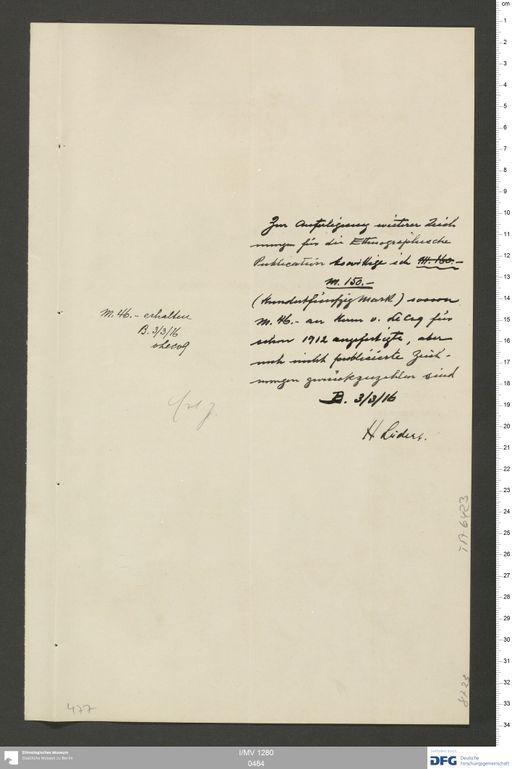 Zur Anfertigung weiterer Zeich
nungen für die Ethnographische
Publication bewillige ich M. 160.-
M. 150.-
(Hundertfünfzig Mark) wovon
M. 46.- an Herrn v. LeCoq für
schon 1912 angefertigte, aber
noch nicht publicierte Zeich-
nungen zurückzuzahlen sind
B. 3/3/16
H Lüders.
M. 46.- erhalten
B. 3/3/16
vLecoq
477
Ethnologisches Museum
Staatliche Museen zu Berlin
I/MV 1280
0484
DFG Deutsche
Forschungsgemeinschaft
cm
1
2
3
4
5
6
7
8
9
10
11
12
13
14
15
16
17
18
19
20
21
22
23
24
25
26
27
28
29
30
31
32
33
34